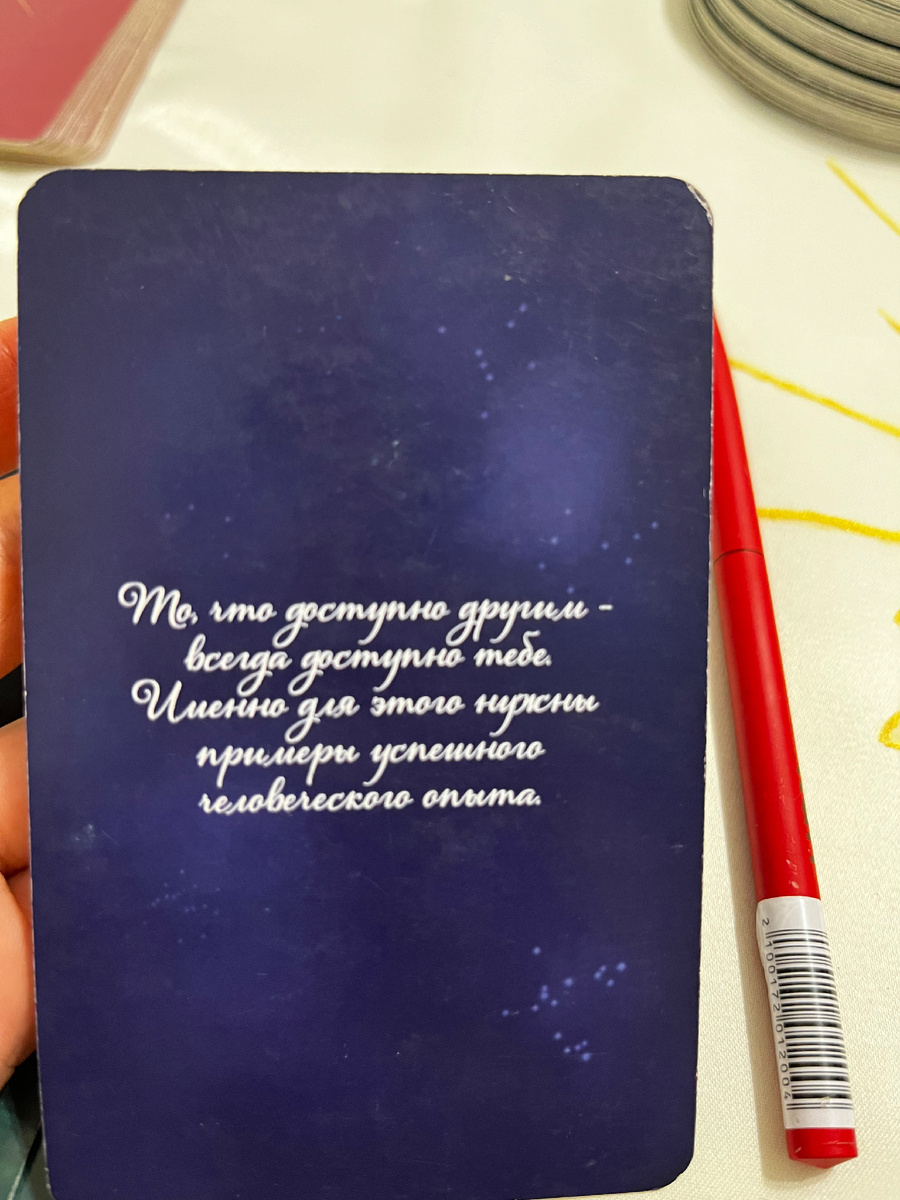 То, что доступно другим -
всегда доступно тебе.
Именно для этого нужны
примеры успешного
человеческого опыта.
2100172012004